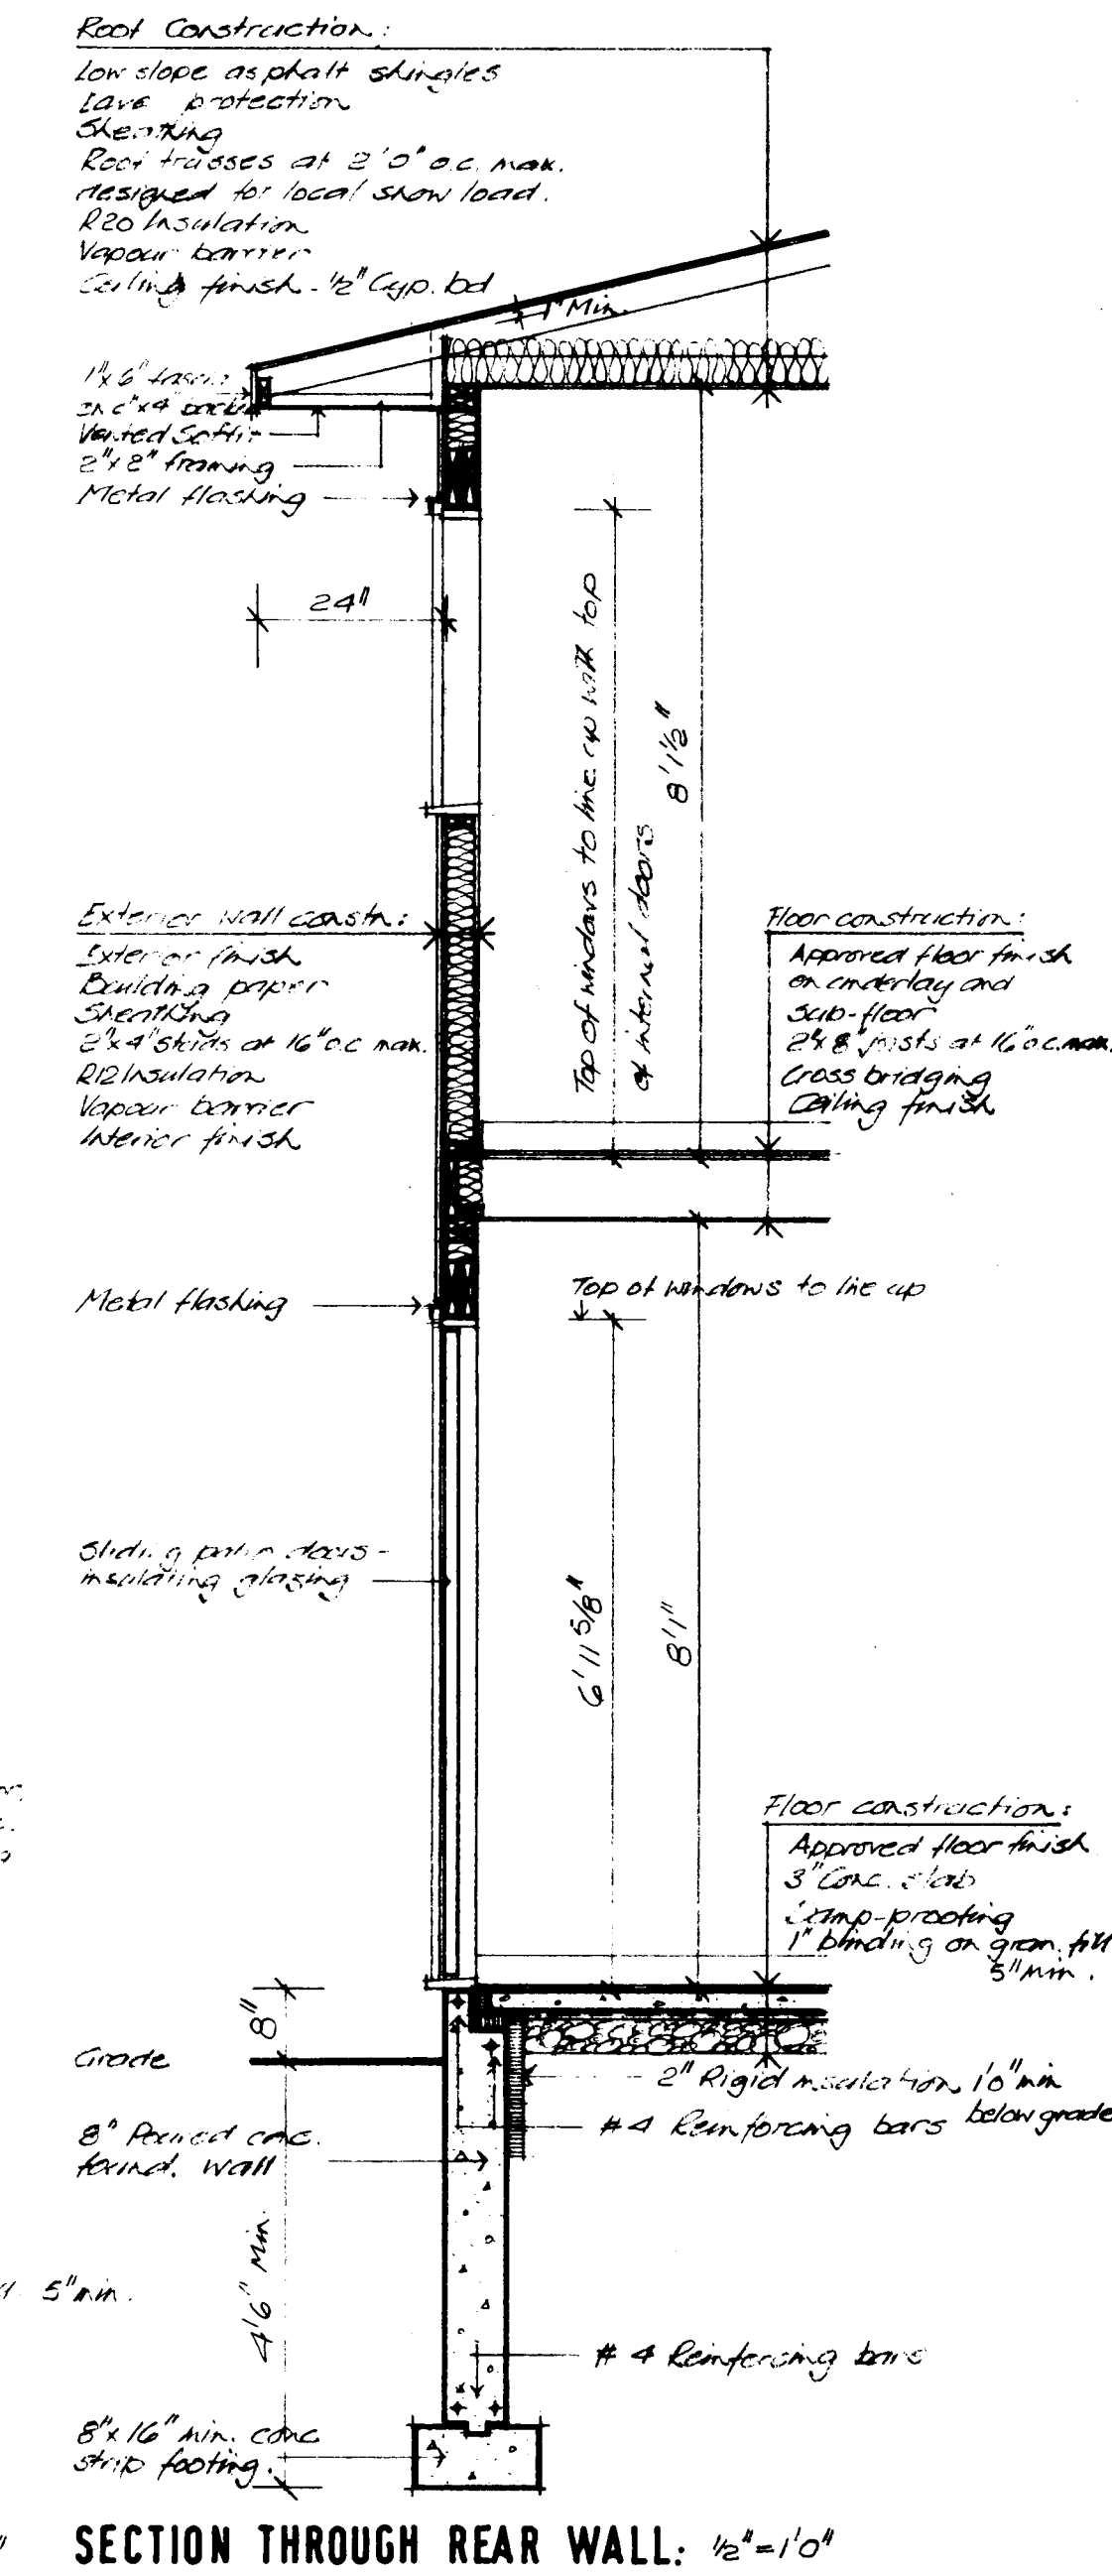 Roof Construction:
Low slope asphalt shingles
Eave protection
Sheathing
Roof trusses at 2'0" o.c. max.
designed for local snow load.
R20 Insulation
Vapour barrier
Ceiling finish - 1/2" Gyp. bd
1" Min.
1"x6" fascia
on 2"x4" backing
Vented Soffit
2"x2" framing
Metal flashing
24"
Top of windows to line up with top
of internal doors
8'1½"
Exterior wall constn:
Exterior finish
Building paper
Sheathing
2"x4" studs at 16" o.c. max.
R12 Insulation
Vapour barrier
Interior finish
Floor construction:
Approved floor finish
on underlay and
sub-floor
2"x8" joists at 16" o.c. max.
Cross bridging
Ceiling finish
Metal flashing
Top of windows to line up
Sliding patio doors -
insulating glazing
6'11 5/8"
8'1"
Floor construction:
Approved floor finish
3" Conc. slab
Damp-proofing
1" blinding on gran. fill
5" min.
8"
Grade
2" Rigid insulation 1'0" min
below grade
# 4 Reinforcing bars
8" Poured conc.
found. wall
4'6" Min.
5" min.
# 4 Reinforcing bars
8"x16" min. conc
strip footing.
SECTION THROUGH REAR WALL: 1/2" = 1'0"